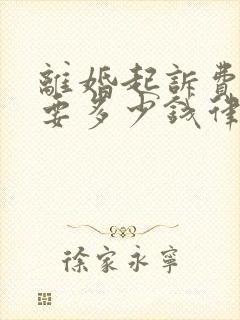 離婚起訴費
要多少錢律
徐家永寧